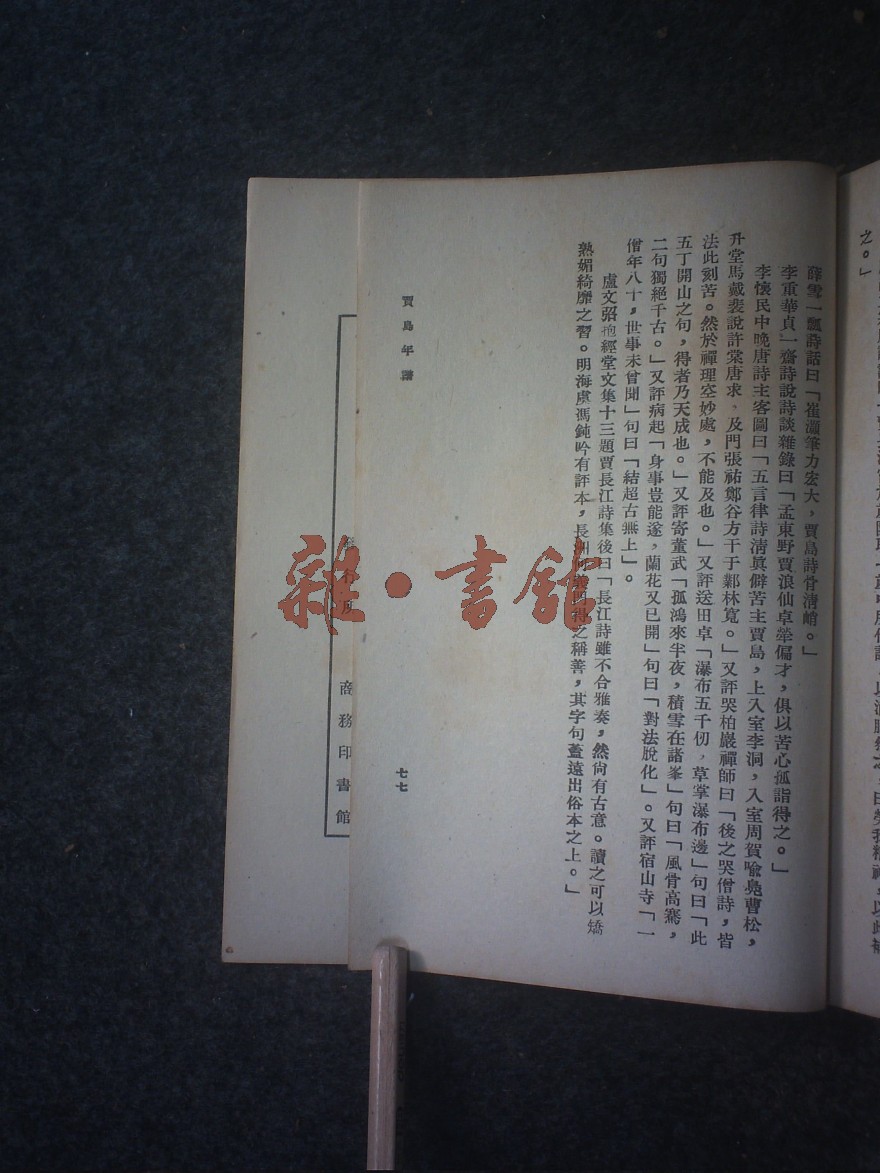 之。」
薛雪一瓢詩話曰「崔灝筆力宏大，賈島詩骨淸峭。」
李重華貞一齋詩說詩談雜錄曰「孟東野賈浪仙卓犖偏才，俱以苦心孤詣得之。」
李懷民中晚唐詩主客圖曰「五言律詩淸眞僻苦主賈島，上入室李洞，入室周賀喩鳧曹松，
升堂馬戴裴說許棠唐求，及門張祐鄭谷方干于鄴林寬。」又評哭柏巖禪師曰「後之哭僧詩，皆
法此刻苦。然於禪理空妙處，不能及也。」又評送田卓「瀑布五千仞，草掌瀑布邊」句曰「此
五丁開山之句，得者乃天成也。」又評寄董武「孤鴻來半夜，積雪在諸峯」句曰「風骨高騫，
二句獨絕千古。」又評病起「身事豈能遂，蘭花又已開」句曰「對法脫化」。又評宿山寺「一
僧年八十，世事未曾聞」句曰「結超古無上」。
盧文弨抱經堂文集十三題賈長江詩集後曰「長江詩雖不合雅奏，然尙有古意。讀之可以矯
熟媚綺靡之習。明海虞馮鈍吟有評本，長洲得之稱善，其字句蓋遠出俗本之上。」
賈島年譜
七七
商務印書館
雜·書館